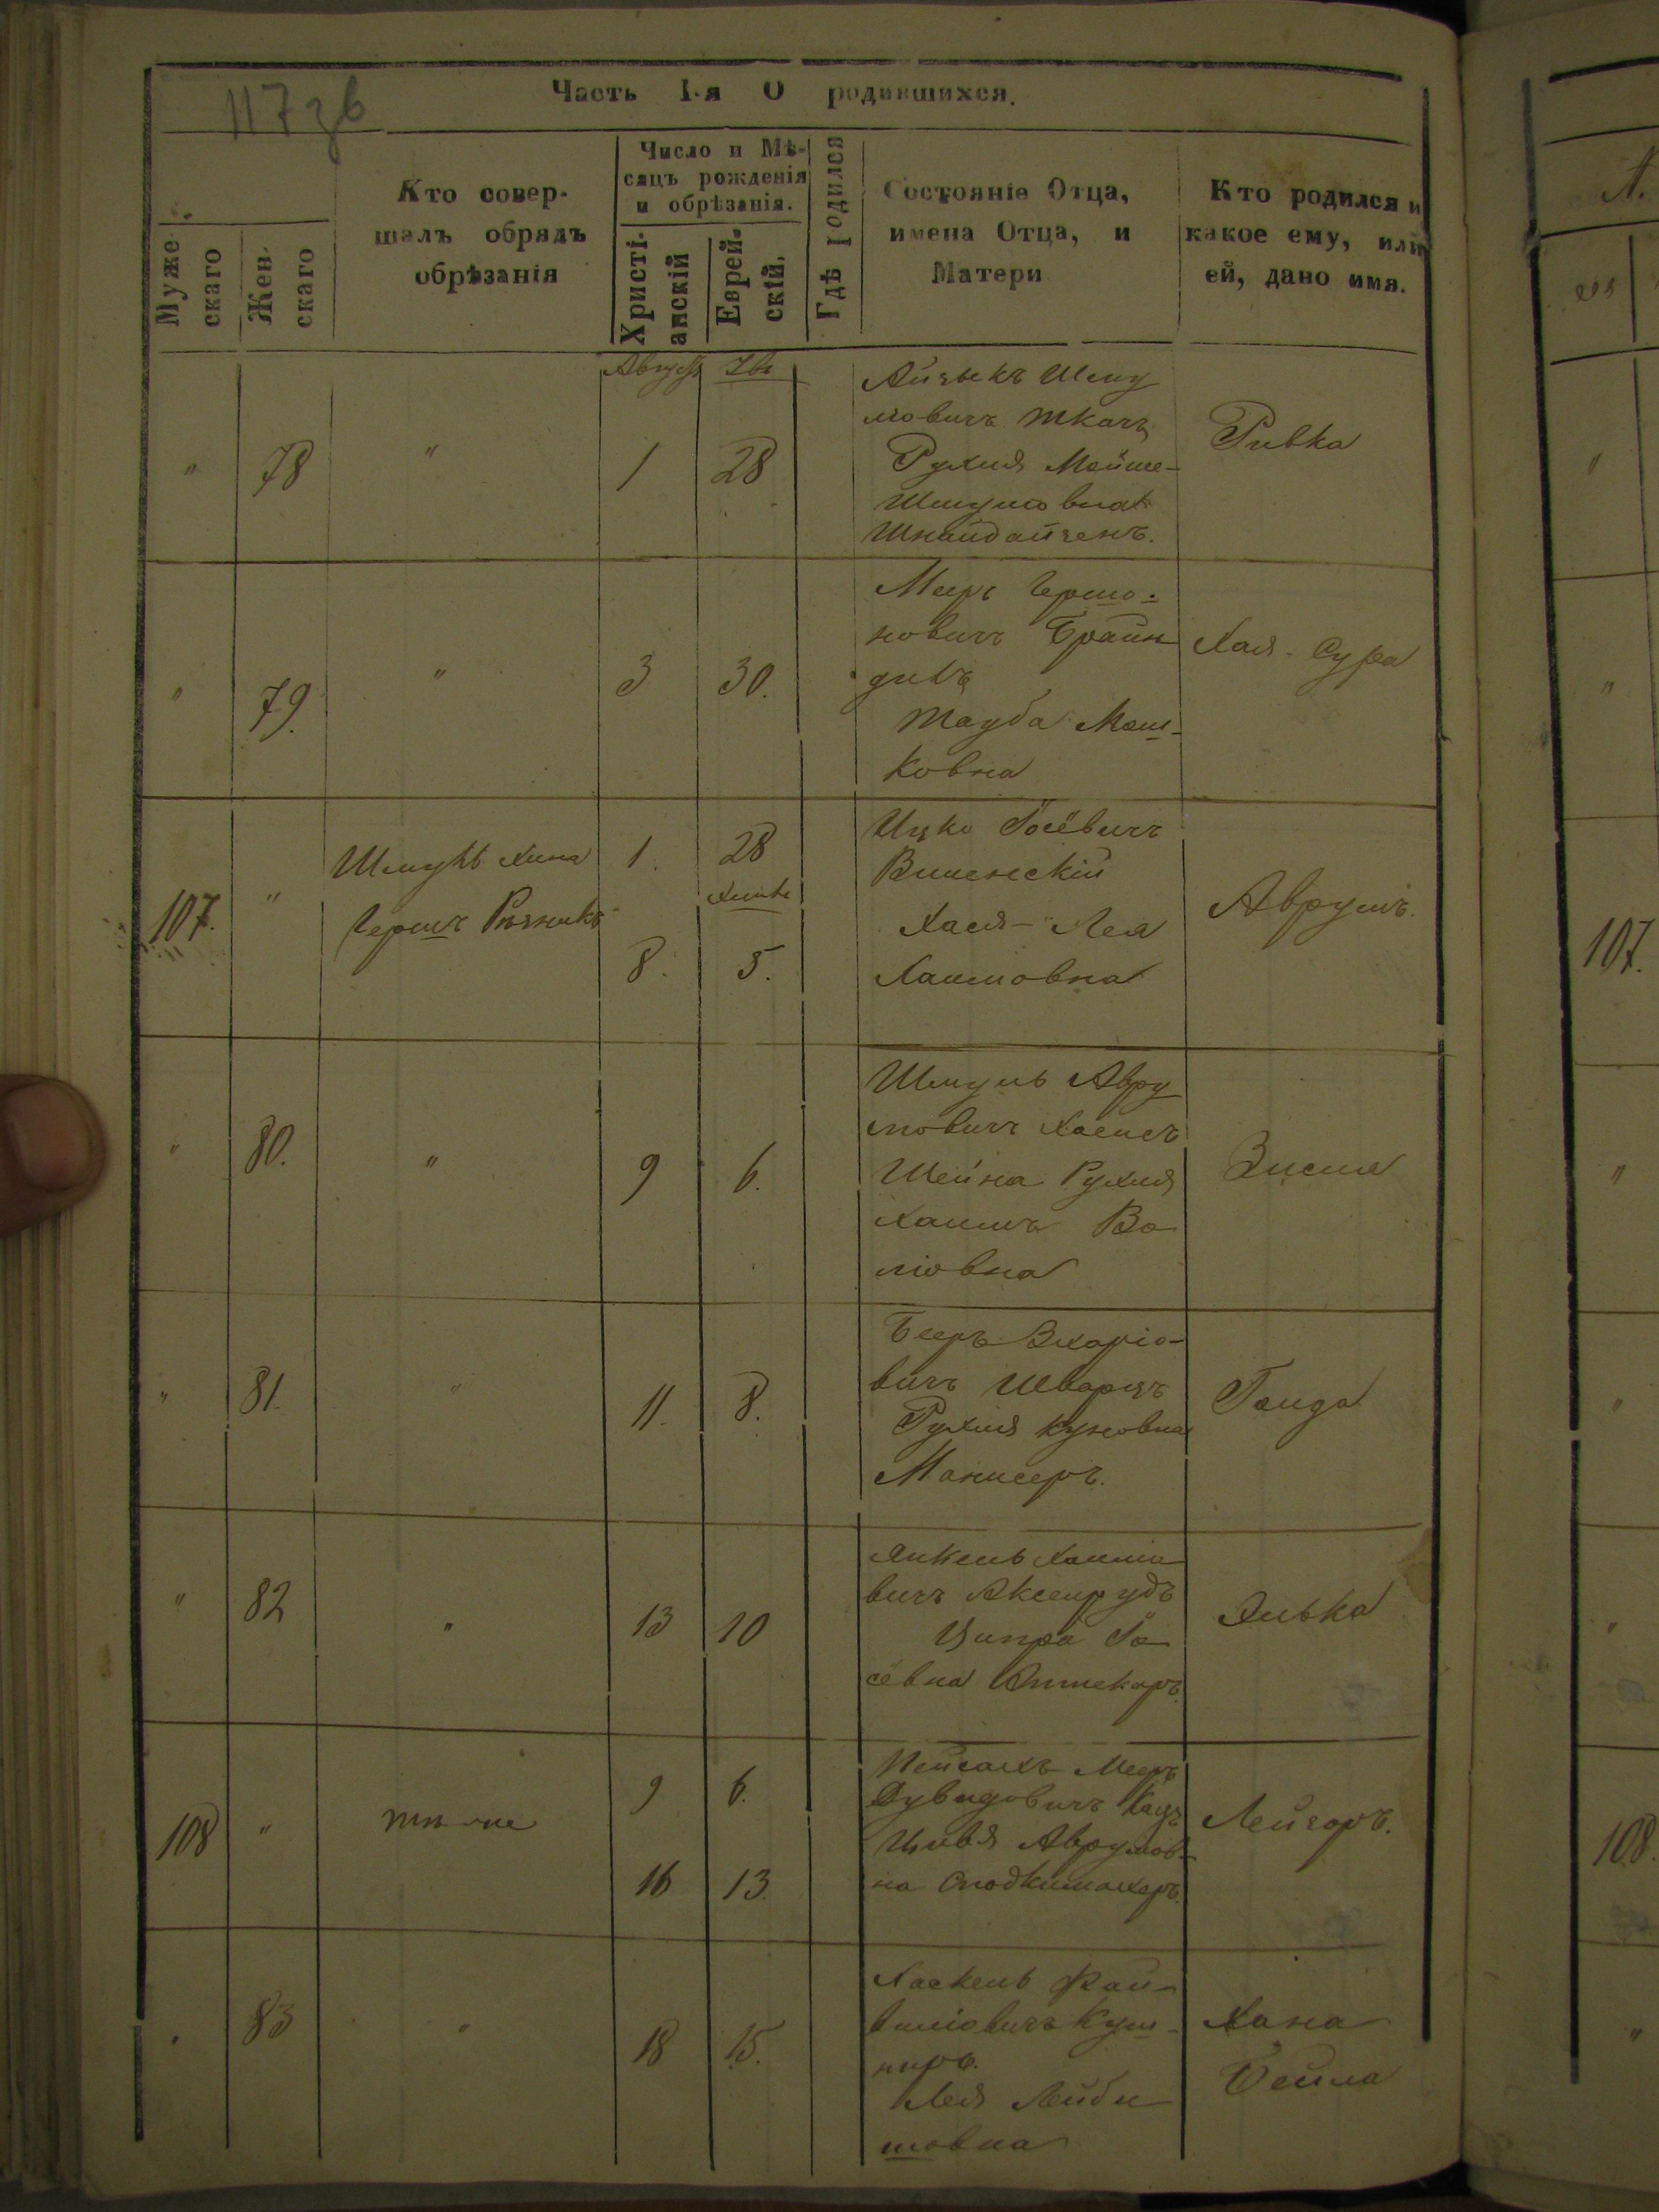 117 зв
Часть I-я О родившихся.
Муже
скаго
Жен.
скаго
Кто совер-
шалъ обрядъ
обрѣзанія
Число и Мѣ-
сяцъ рожденія
и обрѣзанія.
Христі-
анскій
Еврей-
скій.
Гдѣ родился
Состояніе Отца,
имена Отца, и
Матери
Кто родился и
какое ему, или
ей, дано имя.
Августъ
" 78 " 1 28
Айзыкъ Шму
ловичъ Ткачъ
Рухля Мойше-
Шмуловна
Шнайдайгенъ.
Ривка
" 79. " 3 30.
Мееръ Гершо-
новичъ Браин
дихъ
Тауба Мош-
ковна
Хая-Сура
107. "
Шмуль Хина
Гершъ Рѣзникъ
1. 28
8. 5.
Ицко Іосёвичъ
Виленскій
Хася-Лея
Хаимовна
Аврумъ.
" 80. " 9 6.
Шмуль Авру
мовичъ
Шейна Рухля
Хаимъ Во
ліовна
Зисля
" 81. " 11. 8.
Бееръ Зхаріо-
вичъ Шварцъ
Рухля Куновна
Гоида
" 82 " 13 10
Янкель Хаимо
вичъ Аксенрудъ
Ципра Іо
сёвна Аптекаръ.
Элька
108 " тѣ-же
9 6.
16 13.
Пейсахъ Мееръ
Дувидовичъ Кацъ
Цивя Аврумов-
на Сподкимахеръ.
Лейзоръ.
" 83 " 18 15.
Хаскель Фай-
виліовичъ Куш-
ниръ.
Лея Лейби
шовна
Хана
Бейла
107.
108.